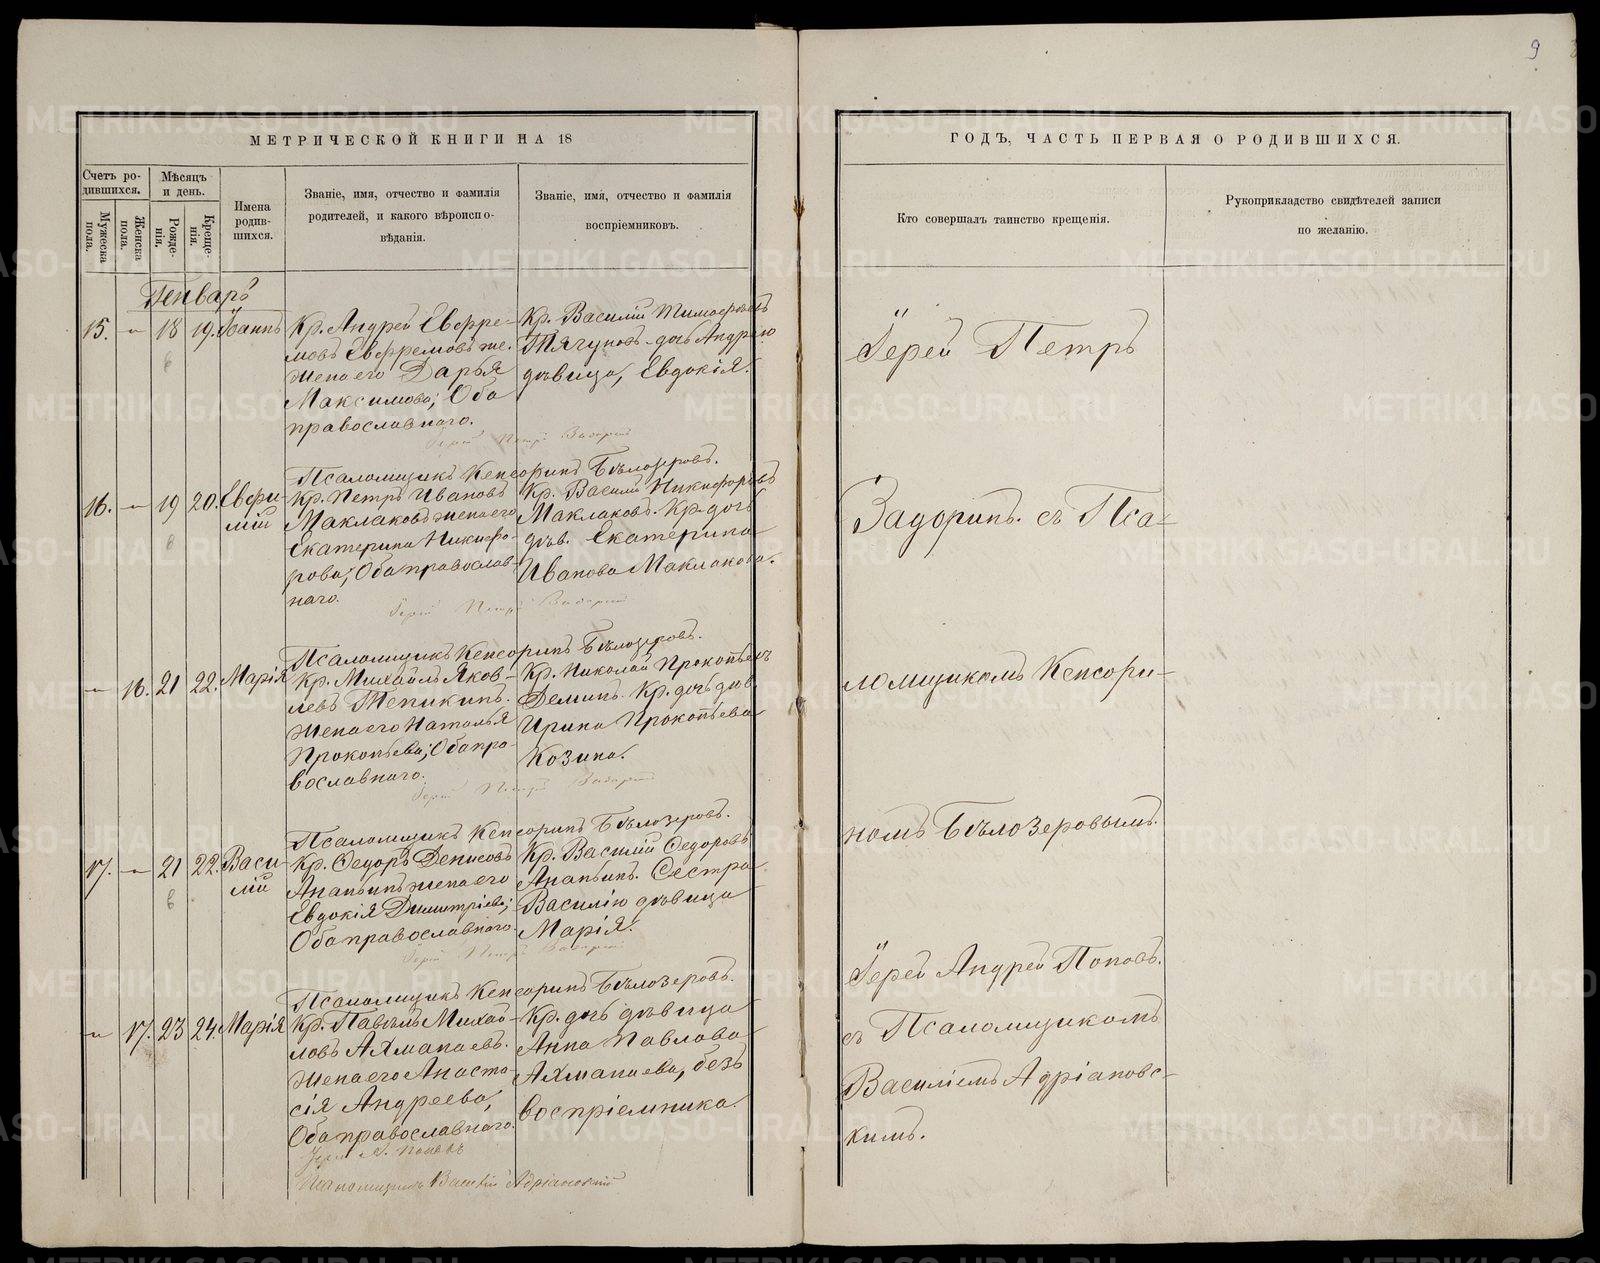 9
МЕТРИЧЕСКОЙ КНИГИ НА 18
Счетъ ро-
дившихся.
Мужеска
пола.
Женска
пола.
Мѣсяцъ
и день.
Рожде-
нія.
Креще-
нія.
Имена
родив-
шихся.
Званіе, имя, отчество и фамилія
родителей, и какого вѣроиспо-
вѣданія.
Званіе, имя, отчество и фамилія
воспріемниковъ.
Генварь
15. - 18 19. Іоаннъ
Кр. Андрей Евфре-
мовъ Евфремовъ же.
жена его Дарья
Максимова; Оба
православнаго.
Кр. Василій Тимофеевъ
Тягуновъ - дочь Андрею
дѣвица, Евдокія.
Іерей Петръ Задоринъ
Псаломщикъ Кенсоринъ Бѣлозеровъ.
16. - 19 20. Евфи-
мій
Кр. Петръ Ивановъ
Маклаковъ жена его
Екатерина Никифо-
рова; Оба православ-
наго.
Кр. Василій Никифоровъ
Маклаковъ. Кр. дочь
дѣв. Екатерина
Иванова Маклакова.
Іерей Петръ Задоринъ
Псаломщикъ Кенсоринъ Бѣлозеровъ.
- 16. 21 22. Марія
Кр. Михаилъ Яков-
левъ Тепикинъ.
жена его Наталья
Прокопьева; Оба пра-
вославнаго.
Кр. Николай Прокопьевъ
Деминъ. Кр. дочь дѣв.
Ирина Прокопьева
Козина.
Іерей Петръ Задоринъ
Псаломщикъ Кенсоринъ Бѣлозеровъ.
17. - 21 22. Васи-
лій
Кр. Федоръ Денисовъ
Ананьинъ жена его
Евдокія Димитріева;
Оба православнаго.
Кр. Василій Федоровъ
Ананьинъ. Сестра
Василію дѣвица
Марія.
Іерей Петръ Задоринъ
Псаломщикъ Кенсоринъ Бѣлозеровъ.
- 17. 23 24. Марія
Кр. Павелъ Михай-
ловъ Ахманаевъ.
жена его Анаста-
сія Андреева,
Оба православнаго.
Кр. дочь дѣвица
Анна Павлова
Ахманаева, безъ
воспріемника.
Іерей А. Поповъ
Псаломщикъ Василій Адріановскій
ГОДЪ, ЧАСТЬ ПЕРВАЯ О РОДИВШИХСЯ.
Кто совершалъ таинство крещенія.
Рукоприкладство свидѣтелей записи
по желанію.
Іерей Петръ
Задоринъ. съ Пса-
ломщикомъ Кенсори-
номъ Бѣлозеровымъ.
Іерей Андрей Поповъ.
съ Псаломщикомъ
Василіемъ Адріановс-
кимъ.
METRIKI.GASO-URAL.RU